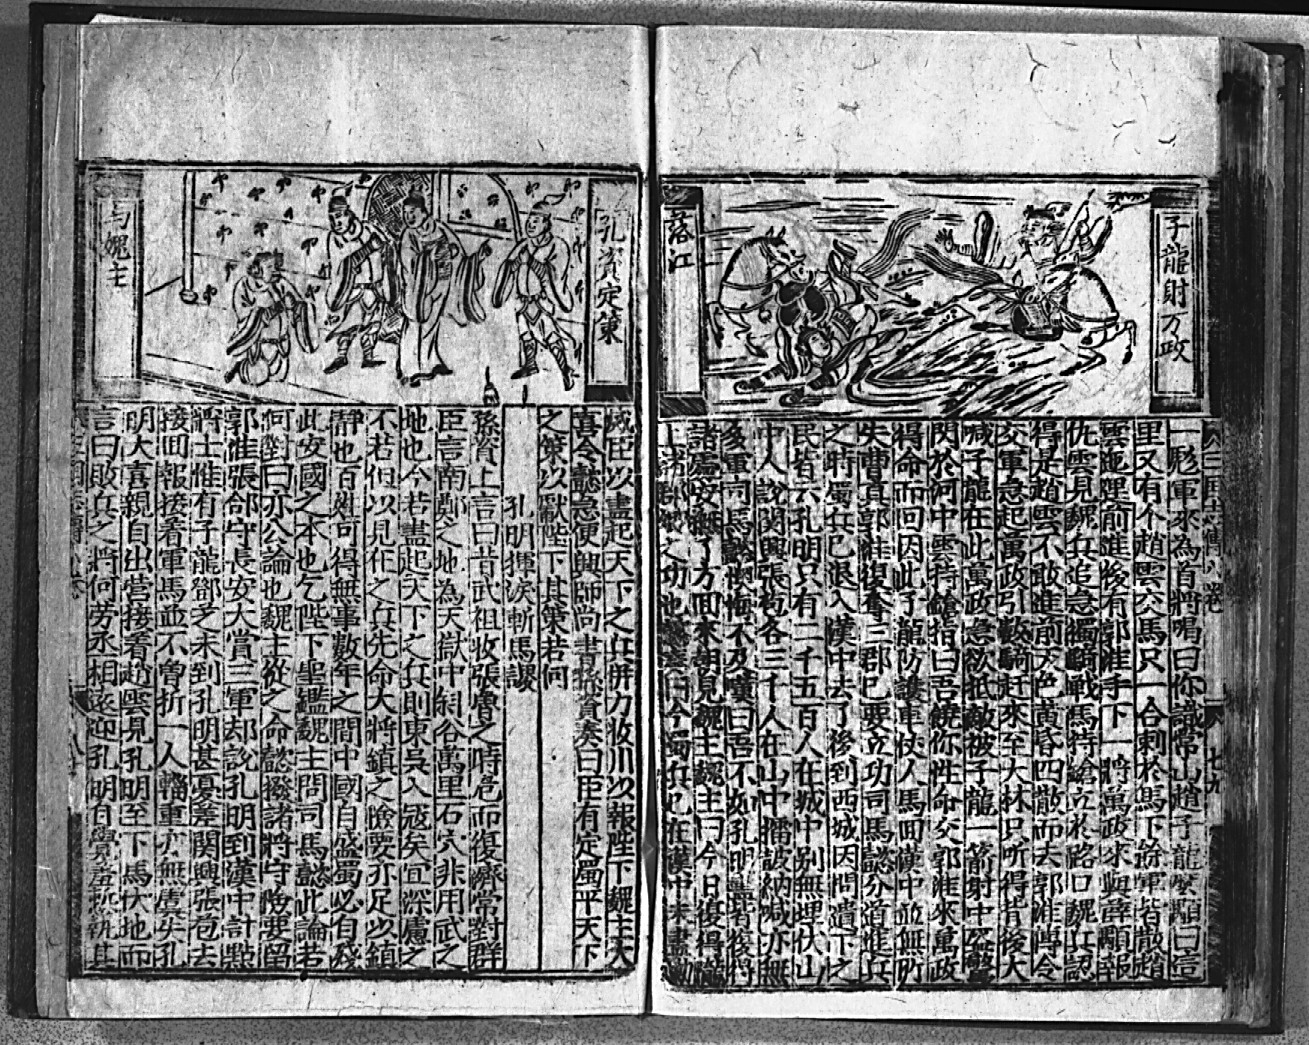 子龍射万政
落江
三國志傳八卷
七九
一彪軍來為首將喝曰你識常山趙子龍麼顒曰這
里又有个趙雲交馬只一合刺於馬下餘軍皆散趙
雲迤逞前進後有郭淮手下一將萬政來與薛顒報
仇雲見魏兵追急獨騎戰馬持鎗立於路口魏兵認
得是趙雲不敢進前天色黃昏四散而去郭淮傳令
交軍急起萬政引數騎赶來至大林只听得背後大
喊子龍在此萬政急欲抵敵被子龍一箭射中盔
閃於河中雲持鎗指曰吾饒你性命交郭淮來萬政
得命而回因此子龍防護車仗人馬回漢中並無所
失曹真郭淮復奪三郡已要立功司馬懿分道進兵
之時蜀兵已退入漢中去了後到西城因問遺下之
民皆云孔明只有二千五百人在城中别無埋伏山
中人說関興張苞各三千人在山中擂皷納喊亦無
多軍司馬懿懊悔不及嘆曰吾不如孔明
諸處安撫了方回來朝見魏主魏主曰今日復得隴
之功也 曰今蜀兵 在漢中未盡
孔資定策
与媿主
滅臣以盡起天下之兵併力收川以報陛下魏主大
喜令懿急便興師尚書孫資奏曰臣有定蜀平天下
之策以獻陛下其策若何
孔明揮淚斬馬謖
孫資上言曰昔武祖收張魯之時危而復濟常對群
臣言南鄭之地為天獄中斜谷萬里石穴非用武之
地也今若盡起天下之兵則東吳入寇矣宜深慮之
不若但以見在之兵先命大將鎮之險要亦足以鎮
靜也百姓可得無事數年之間中國自盛蜀必自殘
此安國之本也乞陛下聖鑑魏主問司馬懿此論若
何對曰亦公論也魏主從之命懿撥諸將守險要留
郭淮張郃守長安大賞三軍却說孔明到漢中計點
將士惟有子龍鄧芝未到孔明甚憂差関興張苞去
接回報接着軍馬並不曾折一人輜重亦無虞失孔
明大喜親自出營接着趙雲見孔明至下馬伏地而
言曰敗兵之將何劳丞相遠迎孔明自覺羞 執其